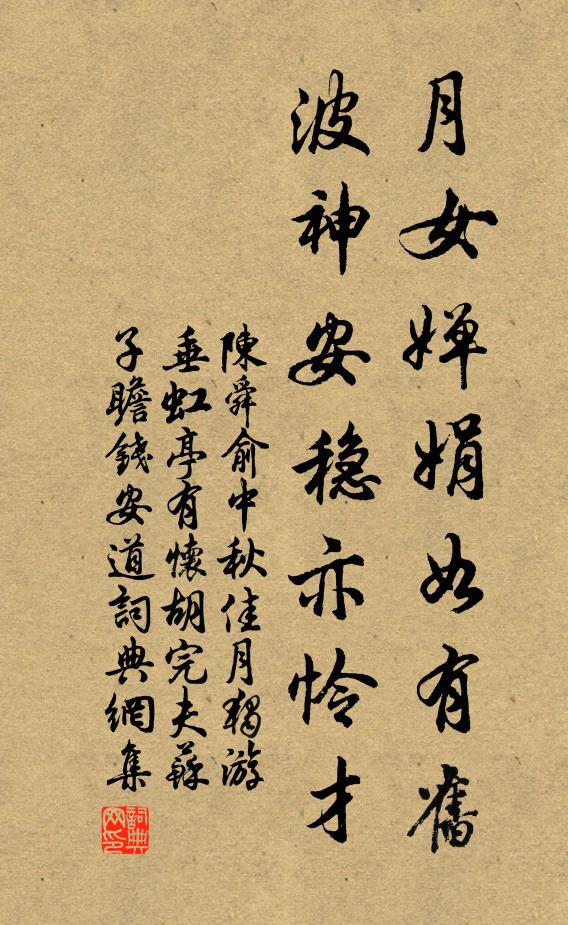 月女婵娟如有舊
波神安稳亦怜才
陳舜俞中秋佳月獨游
垂虹亭有懷胡完夫蘇
子瞻錢安道詞典網集
詞典网印